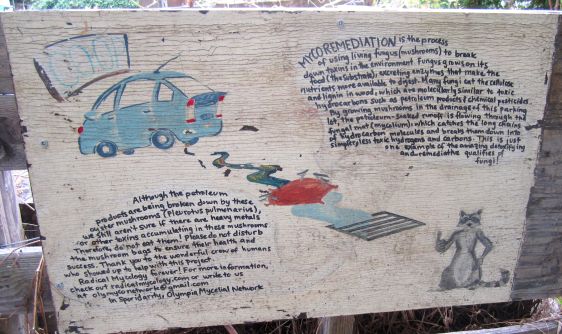 MYCOREMEDIATION is the process
of using living fungus (mushrooms) to break
down toxins in the environment. Fungus grows on its
food (the substrate), excreting enzymes that make the
nutrients more available to digest. Many fungi eat the cellulose
and lignin in wood, which are molecularly similar to toxic
hydrocarbons such as petroleum products & chemical pesticides.
by growing mushrooms in the drainage of this parking
lot, the petroleum-soaked runoff is flowing through the
fungal mat (mycelium), which catches the long chains
of hydrocarbon molecules and breaks them down into
simpler, less toxic hydrogens and carbons. This is just
one example of the amazing detoxifying
and remediative qualities of
fungi!
Although the petroleum
products are being broken down by these
oyster mushrooms (Pleurotus pulmonarius),
we still aren't sure if there are heavy metals
or other toxins accumulating in these mushrooms
therefore, do not eat them! Please do not disturb
the mushroom bags to ensure their health and
success. Thank you to the wonderful crew of humans
who showed up to help with this project.
Radical Mycology forever! For more information,
check out radicalmycology.com or write to us
at olymyconetwork@gmail.com
In Sporidarity, Olympia Mycelial Network